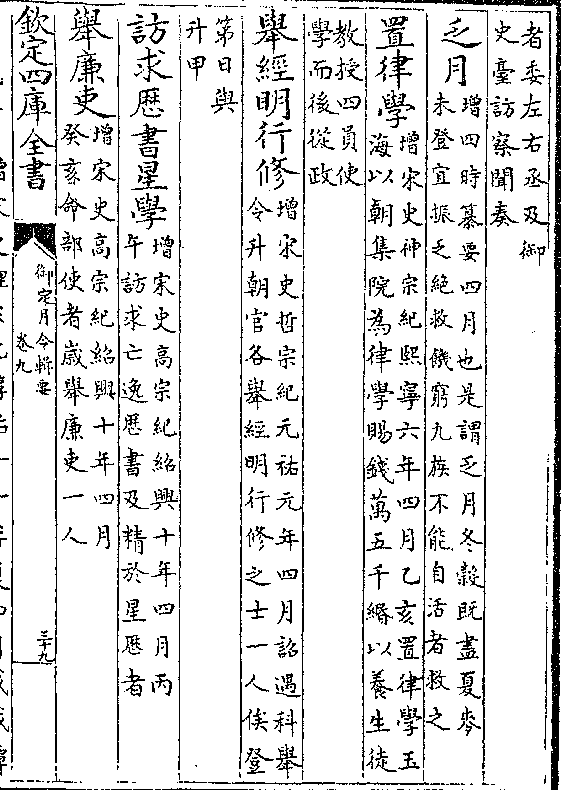 者委左右丞及御
史臺訪察聞奏
乏月
增四時纂要四月也是謂乏月冬穀既盡夏麥
未登宜振乏絕救饑窮九族不能自活者救之
置律學
增宋史神宗紀熙寧六年四月乙亥置律學玉
海以朝集院為律學賜錢萬五千緡以養生徒
教授四員使
學而後從政
舉經明行修
增宋史哲宗紀元祐元年四月詔遇科舉
令升朝官各舉經明行修之士一人俟登
第日與
升甲
訪求歷書星學
增宋史高宗紀紹興十年四月丙
午訪求亡逸歷書及精於星歷者
舉廉吏
增宋史高宗紀紹興十年四月
癸亥命部使者歲舉廉吏一人
欽定四庫全書
御定月令輯要
卷九
三十九